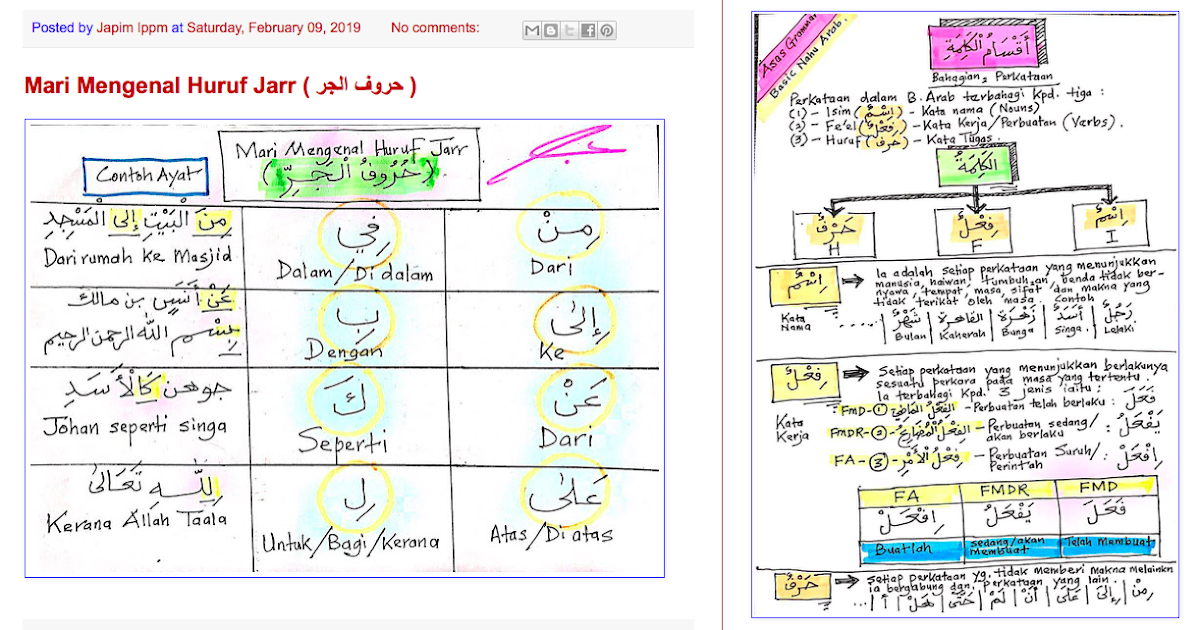 Posted by Japim Ippm at Saturday, February 09, 2019 No comments:
Mari Mengenal Huruf Jarr ( حروف الجر )
Contoh Ayat
Mari Mengenal Huruf Jarr
(حُرُوفُ الْجَرِّ)
مِنَ الْبَيْتِ إِلَى الْمَسْجِدِ
Dari rumah ke Masjid
فِي
Dalam/Didalam
مِنْ
Dari
عَنْ أَنَسِ بن مالك
بِسْمِ اللّٰه الرحمن الرحيم
بِ
Dengan
إِلَىٰ
Ke
جوهن كَالْأَسَدِ
Johan seperti singa
كَ
Seperti
عَنْ
Dari
لِلّٰهِ تَعَالَىٰ
Kerana Allah Taala
لِ
Untuk/Bagi/Kerana
عَلَىٰ
Atas/Diatas
Asas Grammar
Basic Nahu Arab.
أَقْسَامُ الْكَلِمَةِ
Bahagian2 Perkataan
Perkataan dalam B. Arab terbahagi kpd. tiga :
(1) - Isim (إِسْمٌ) - Kata nama (Nouns)
(2) - Fe'el (فِعْلٌ) - Kata Kerja/Perbuatan (Verbs).
(3) - Huruf (حَرْفٌ) - Kata Tugas.
الْكَلِمَةُ
حَرْفٌ
H
فِعْلٌ
F
اِسْمٌ
I
اِسْمٌ
Kata
Nama
Ia adalah setiap perkataan yang menunjukkan
manusia, haiwan, tumbuhan, benda tidak ber-
nyawa, tempat, masa, sifat dan makna yang
tidak terikat oleh masa. Contoh
..... | شَهْرٌ | القاهرة | زَهْرَةٌ | أَسَدٌ | رَجُلٌ
Bulan | Kaherah | Bunga | Singa | Lelaki
فِعْلٌ
Kata
Kerja
Setiap perkataan yang menunjukkan berlakunya
sesuatu perkara pada masa yang tertentu.
Ia terbahagi kpd. 3 jenis iaitu :
FMD-① الفِعْلُ المَاضِي - Perbuatan telah berlaku : فَعَلَ
FMDR-② الفِعْلُ الْمُضَارِعُ - Perbuatan sedang/ : يَفْعَلُ
akan berlaku
FA-③ فِعْلُ الْأَمْرِ - Perbuatan Suruh/ : اِفْعَلْ
Perintah
FA FMDR FMD
اِفْعَلْ يَفْعَلُ فَعَلَ
Buatlah
sedang/akan
membuat
Telah Membuat
حَرْفٌ
setiap perkataan yg. tidak memberi makna melainkn
ia bergabung dgn. perkataan yang lain.
مِنْ | إِلَىٰ | عَلَىٰ | أَنْ | لَمْ | حَتَّىٰ | هَلْ | أَ | ...